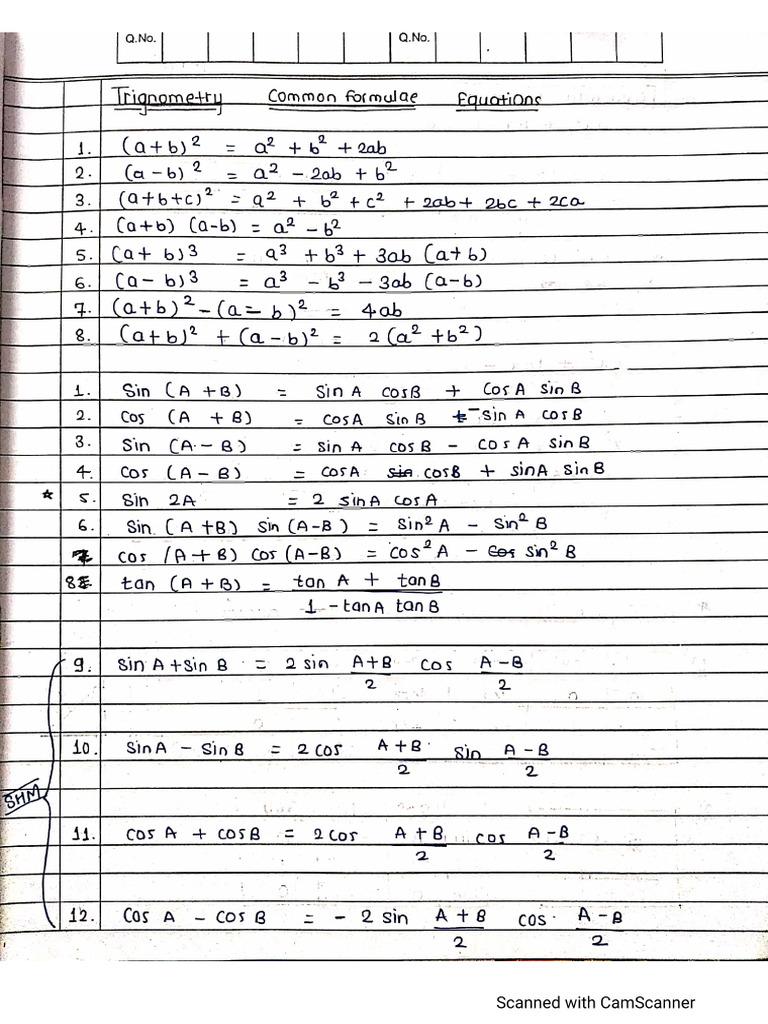 Q.No. Q.No.
Trignometry Common formulae Equations
1. (a+b)² = a² + b² + 2ab
2. (a-b)² = a² - 2ab + b²
3. (a+b+c)² = a² + b² + c² + 2ab + 2bc + 2ca
4. (a+b) (a-b) = a² - b²
5. (a+b)³ = a³ + b³ + 3ab (a+b)
6. (a-b)³ = a³ - b³ - 3ab (a-b)
7. (a+b)² - (a-b)² = 4ab
8. (a+b)² + (a-b)² = 2(a² + b²)
1. Sin (A+B) = Sin A cosB + Cos A sin B
2. Cos (A+B) = CosA Sin B - Sin A cosB
3. Sin (A-B) = Sin A cosB - cos A sin B
4. Cos (A-B) = cosA cosB + sinA sin B
* 5. Sin 2A = 2 sinA cosA
6. Sin (A+B) sin (A-B) = Sin² A - Sin² B
7. cos (A+B) cos (A-B) = cos² A - sin² B
8. tan (A+B) = tan A + tanB
1 - tanA tanB
9. sin A + sin B = 2 sin A+B cos A-B
2 2
10. SinA - SinB = 2 cos A+B sin A-B
2 2
SHM
11. cosA + cosB = 2 cos A+B cos A-B
2 2
12. Cos A - cos B = - 2 sin A+B cos A-B
2 2
Scanned with CamScanner